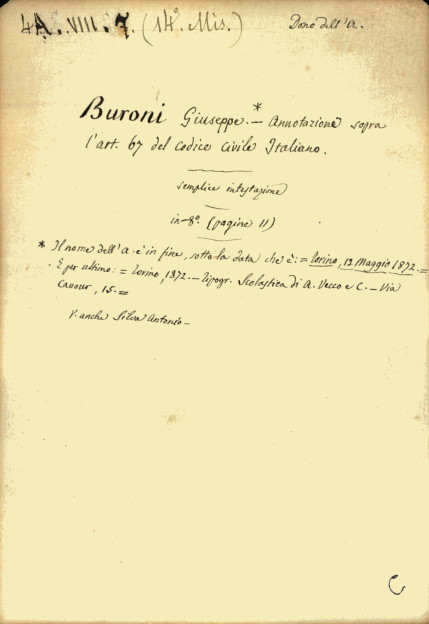 4A. VIII. 7. (14°. Mis.) Dono dell'A.
Buroni Giuseppe.* — Annotazione sopra
l'art. 67 del Codice Civile Italiano.
semplice intestazione
in-8°. (pagine 11)
* Il nome dell'A. è in fine, sotto la data che è: = Torino, 12 Maggio 1872. =
E per ultimo: = Torino, 1872. — Tipogr. Scolastica di A. Vecco e C. — Via
Cavour, 15. =
V. anche Silva Antonio —